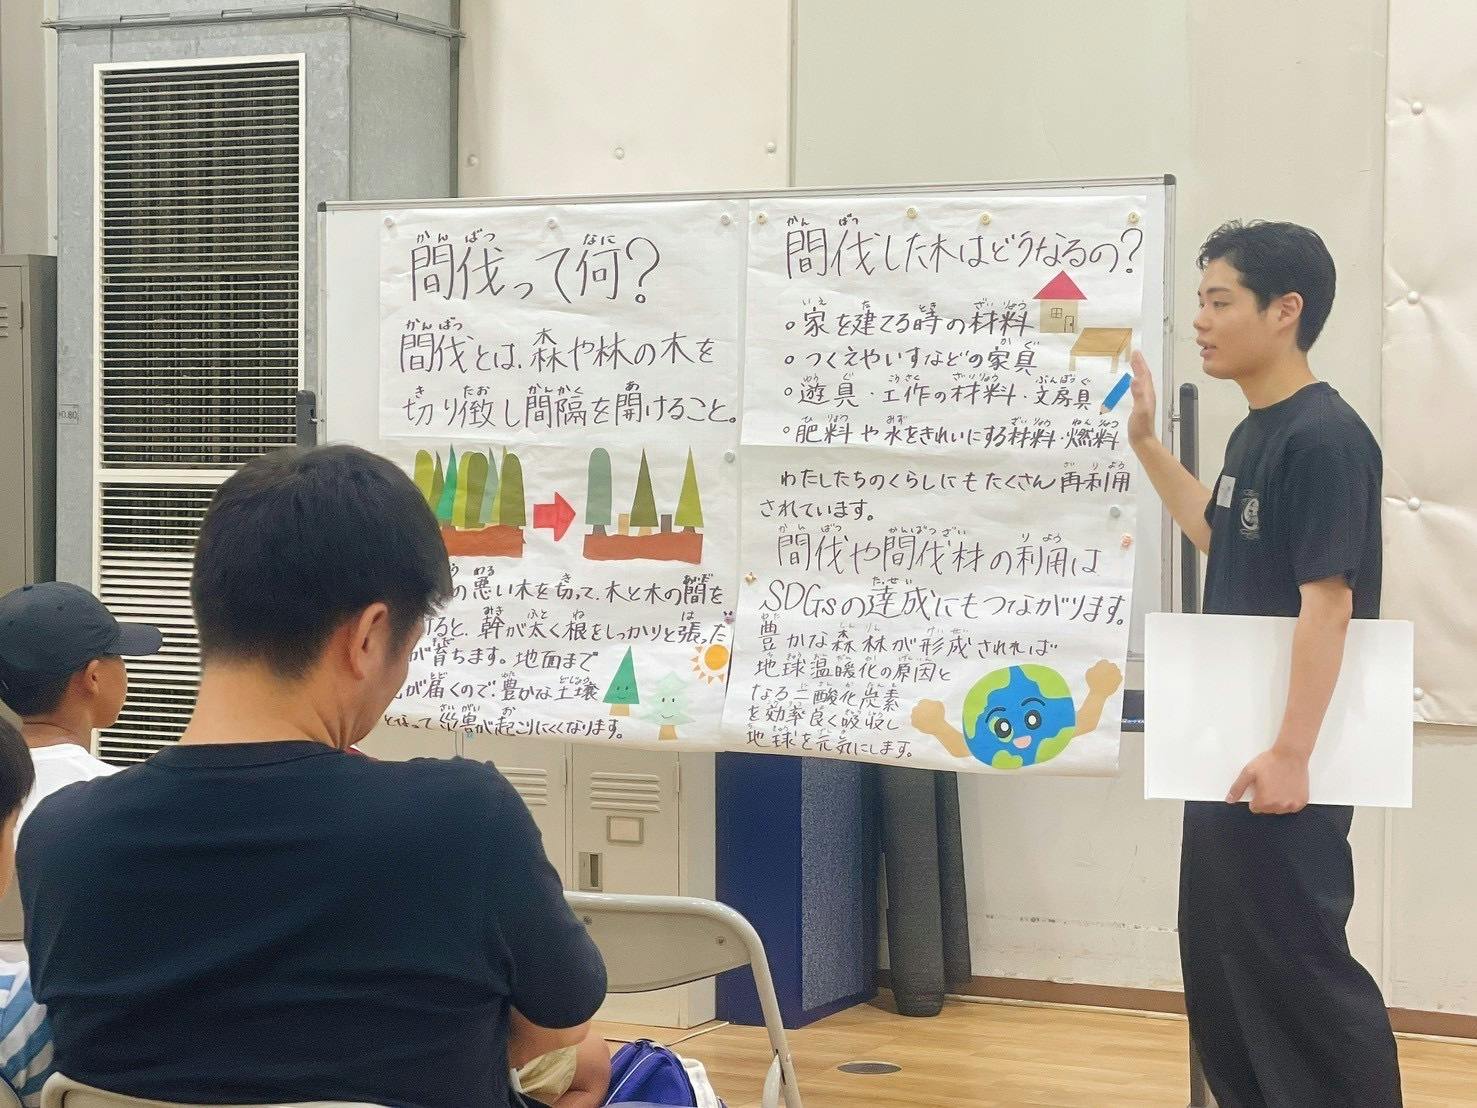 間伐って何?
間伐とは、森や林の木を
切り倒し間隔を開けること。
の悪い木を切って、木と木の間を
ると、幹が太く根をしっかりと張った
が育ちます。地面まで
が届くので、豊かな土壌
災害が起こりにくくなります。
間伐した木はどうなるの?
。家を建てる時の材料
。つくえやいすなどの家具
。遊具・工作の材料・文房具
。肥料や水をきれいにする材料・燃料
わたしたちのくらしにもたくさん再利用
されています。
間伐や間伐材の利用は
SDGsの達成にもつながります。
豊かな森林が形成されれば
地球温暖化の原因と
なる二酸化炭素
を効率良く吸収し
地球を元気にします。